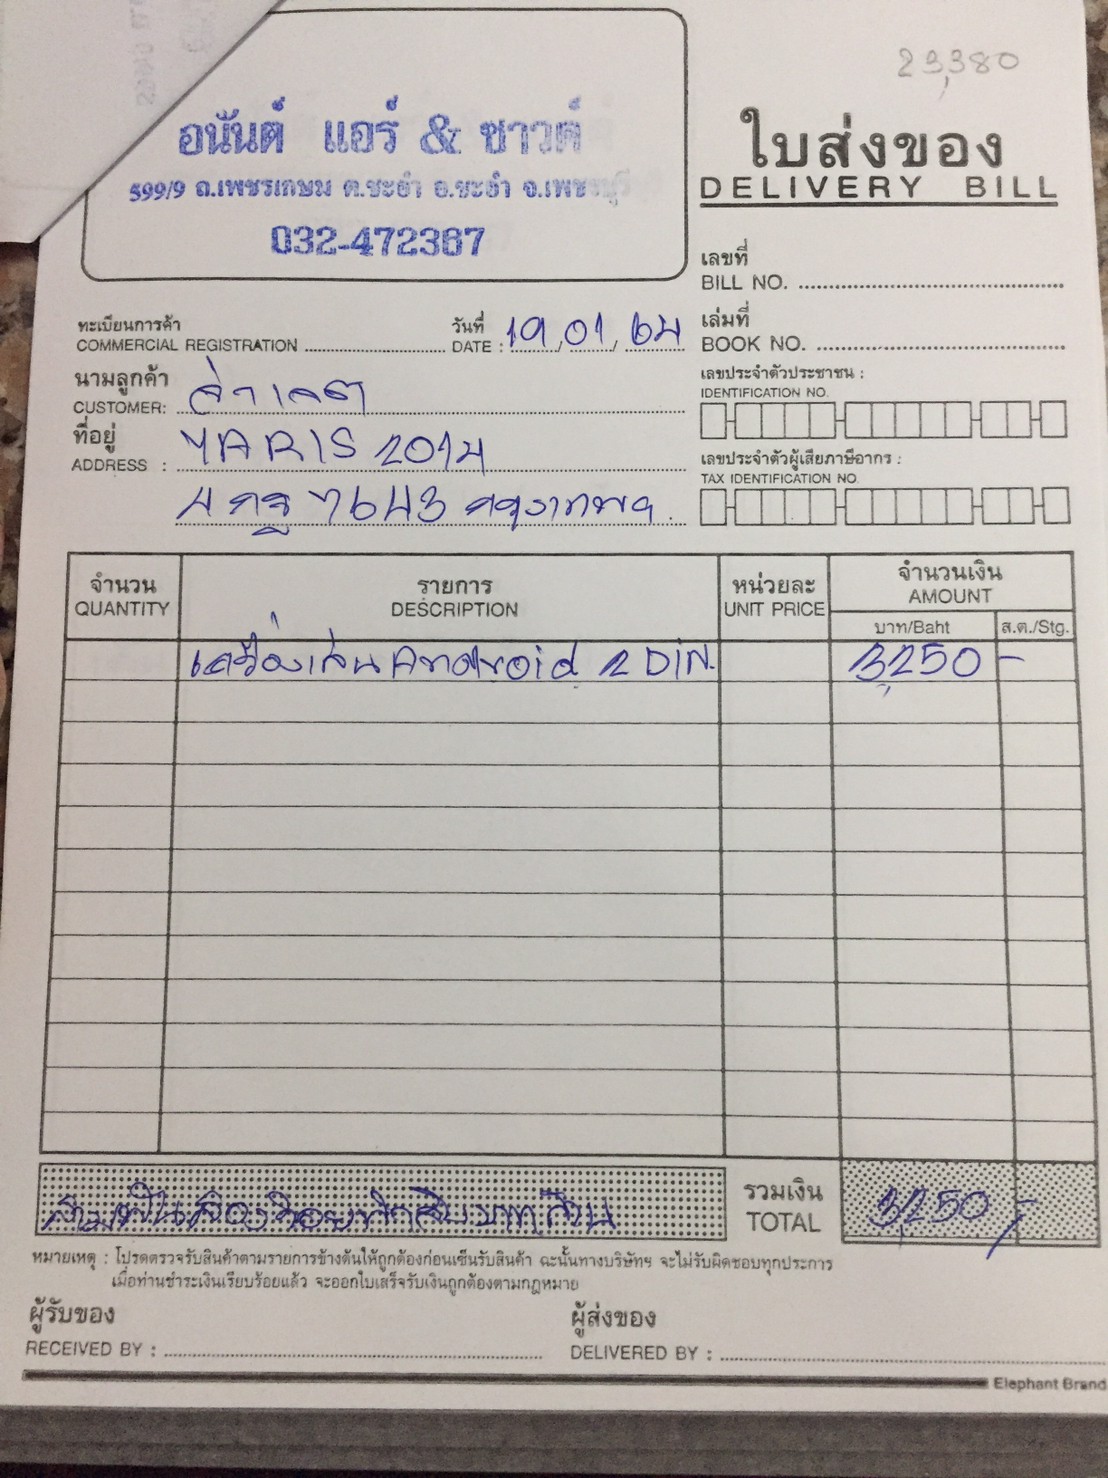 23,380
อนันต์ แอร์ & ซาวด์
599/9 ถ.เพชรเกษม ต.ชะอำ อ.ชะอำ จ.เพชรบุรี
032-472367
ใบส่งของ
DELIVERY BILL
เลขที่
BILL NO.
ทะเบียนการค้า
COMMERCIAL REGISTRATION
วันที่
DATE : 19, 01, 64
เล่มที่
BOOK NO.
นามลูกค้า
CUSTOMER:
เลขประจำตัวประชาชน :
IDENTIFICATION NO.
ที่อยู่
ADDRESS : YARIS 2014
เลขประจำตัวผู้เสียภาษีอากร :
TAX IDENTIFICATION NO.
7643 กรุงเทพฯ
จำนวน
QUANTITY
รายการ
DESCRIPTION
หน่วยละ
UNIT PRICE
จำนวนเงิน
AMOUNT
บาท/Baht
ส.ต./Stg.
เครื่องเล่น Android 2 DIN. 3,250 -
สามพันสองร้อยห้าสิบบาทถ้วน
รวมเงิน
TOTAL
3,250 -
หมายเหตุ : โปรดตรวจรับสินค้าตามรายการข้างต้นให้ถูกต้องก่อนเซ็นรับสินค้า ฉะนั้นทางบริษัทฯ จะไม่รับผิดชอบทุกประการ
เมื่อท่านชำระเงินเรียบร้อยแล้ว จะออกใบเสร็จรับเงินถูกต้องตามกฎหมาย
ผู้รับของ
RECEIVED BY :
ผู้ส่งของ
DELIVERED BY :
Elephant Brand